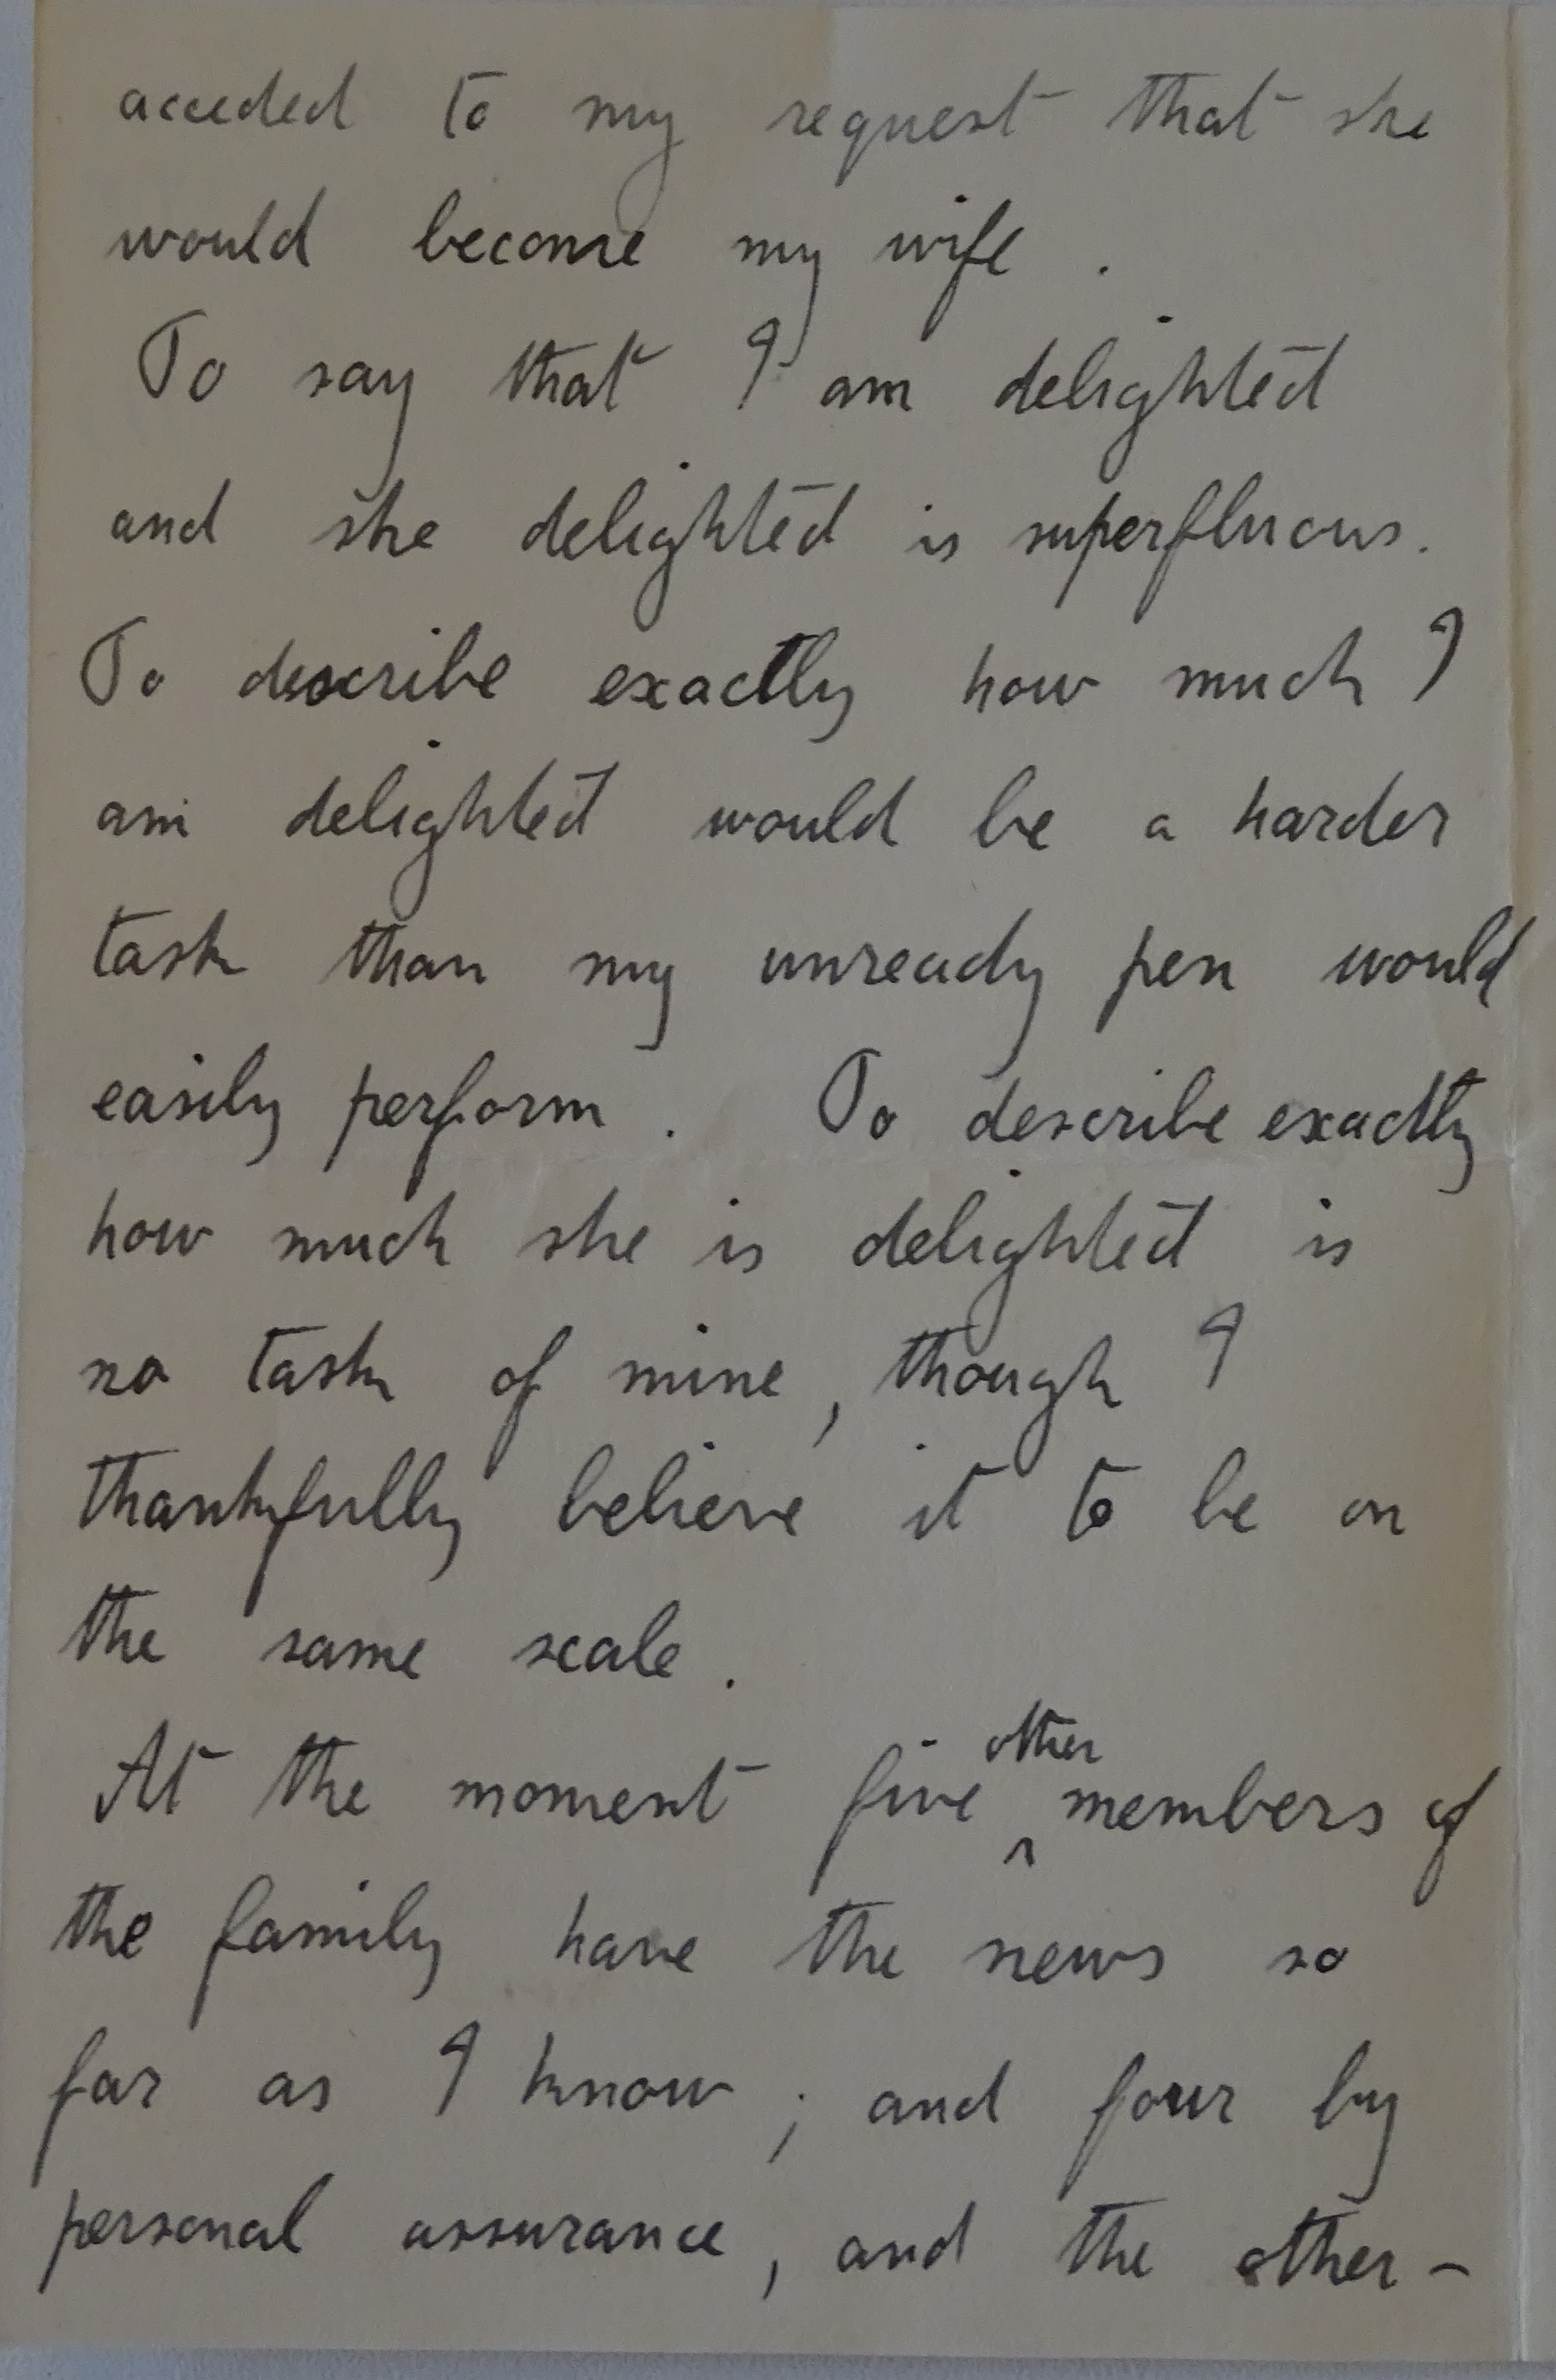 acceded to my request that she
would become my wife .
To say that I am delighted
and she delighted is superfluous.
To describe exactly how much I
am delighted would be a harder
task than my unready pen would
easily perform . To describe exactly
how much she is delighted is
no task of mine , though I
thankfully believe it to be on
the same scale .
At the moment five other members of
the family have the news so
far as I know ; and four by
personal assurance , and the other –